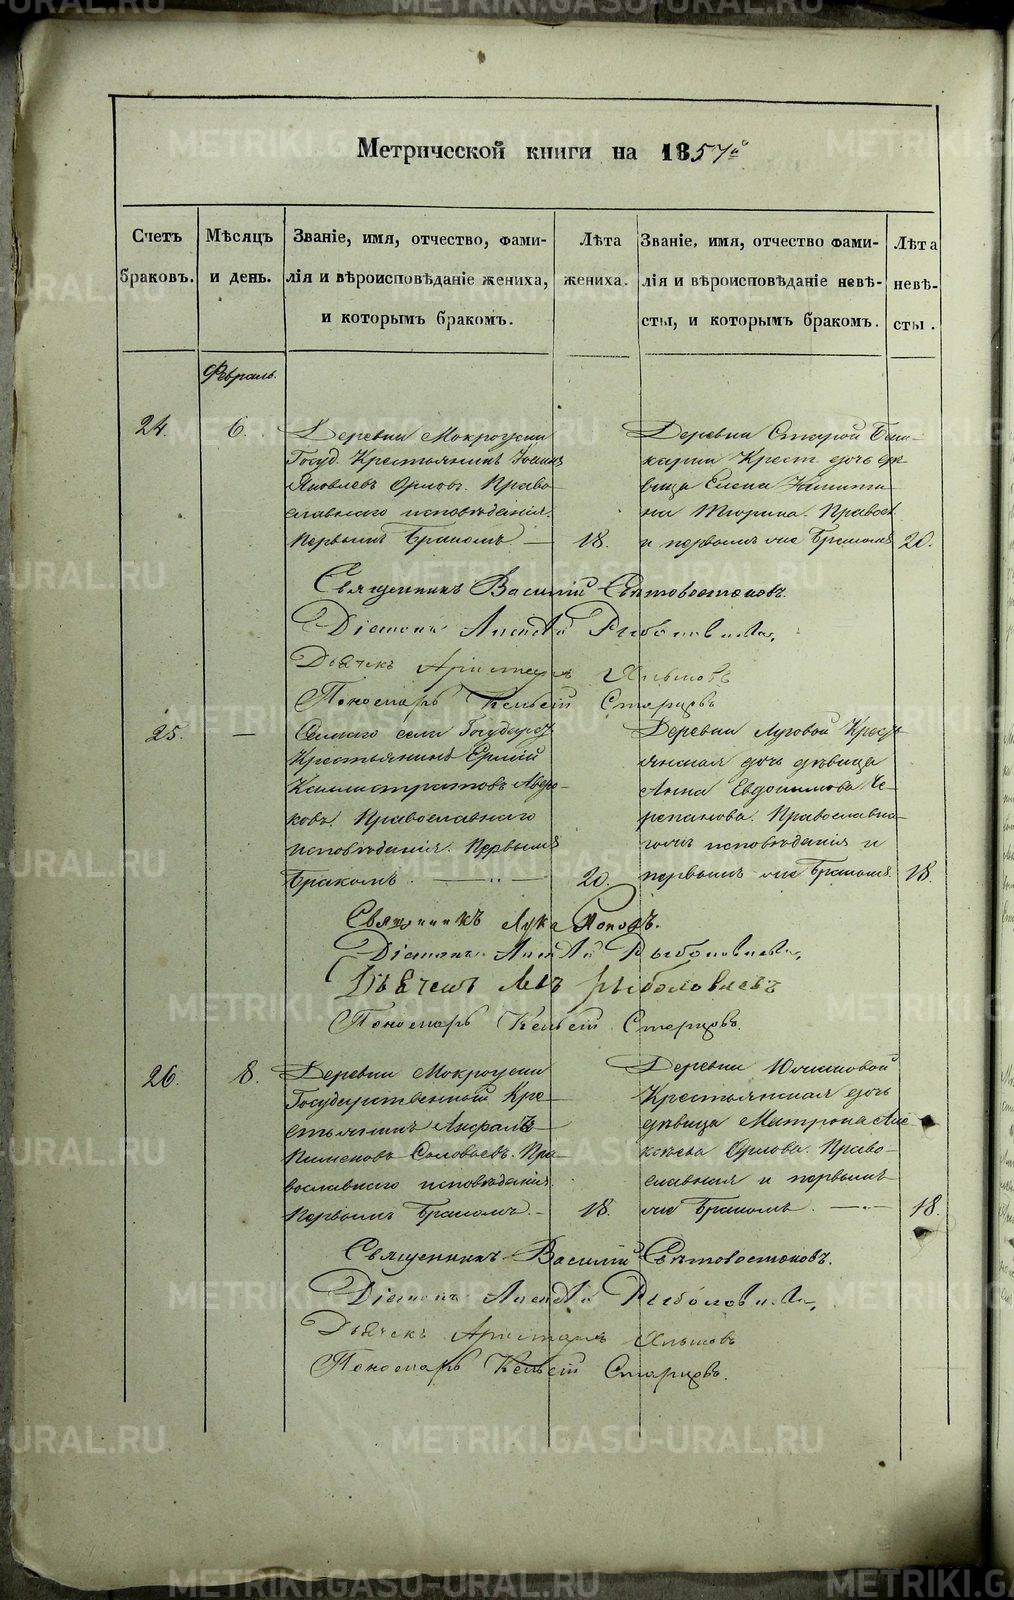 Метрической книги на 1857й
Счетъ браковъ.
Мѣсяцъ и день.
Званіе, имя, отчество, фами-
лія и вѣроисповѣданіе жениха,
и которымъ бракомъ.
Лѣта жениха.
Званіе, имя, отчество фами-
лія и вѣроисповѣданіе невѣ-
сты, и которымъ бракомъ.
Лѣта невѣ-
сты.
Февраль.
24.
6.
Деревни Мокроусии
Госуд. Крестьянинъ Іоаннъ
Яковлевъ Орловъ. Право
славнаго исповѣданія.
Первымъ бракомъ. —
18.
Деревни Старой Баш-
карки Крест. дочь дѣ
вица Елена Никити
на Тюрина. Правосл
и первымъ же бракомъ
20.
Священникъ Василій
Діаконъ Алексѣй Рыболовлевъ,
Дьячекъ Аристархъ
Пономарь Кельсій Старцовъ
25.
—
Самаго села Государст
Крестьянинъ Ермій
Каллистратовъ Авдю-
ковъ. Православнаго
исповѣданія. Первымъ
бракомъ. —
20.
Деревни Луговой Крест
янская дочь дѣвица
Анна Евдокимова Че-
репанова. Православна-
гожъ исповѣданія и
первымъ же бракомъ.
18.
Священникъ Лука Поповъ.
Діаконъ Алексѣй Рыболовлевъ,
Дьячекъ Левъ Рыболовлевъ
Пономарь Кельсій Старцовъ.
26.
8.
Деревни Мокроусии
Государственный Кре-
стьянинъ
Пименовъ Соловьевъ. Пра-
вославнаго исповѣданія
Первымъ бракомъ. —
18.
Деревни
Крестьянская дочь
дѣвица Матрона Але-
ксѣева Орлова. Право-
славная и первымъ
же бракомъ. —
18.
Священникъ Василій
Діаконъ Алексѣй Рыболовлевъ,
Дьячекъ Аристархъ
Пономарь Кельсій Старцовъ.
METRIKI.GASO-URAL.RU